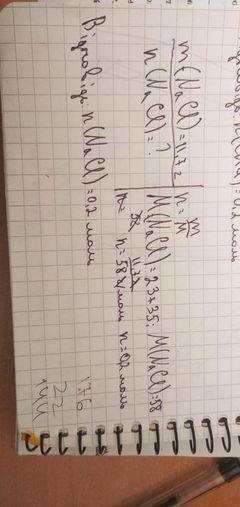 n(CH4) = 0,2 моль
m(NaCl) = 11,7 г
n(NaCl) = ?
n = m/M
M(NaCl) = 23+35; M(NaCl) = 58
n = 11,7г/58г/моль n = 0,2 моль
Відповідь: n(NaCl) = 0,2 моль
176
22
144